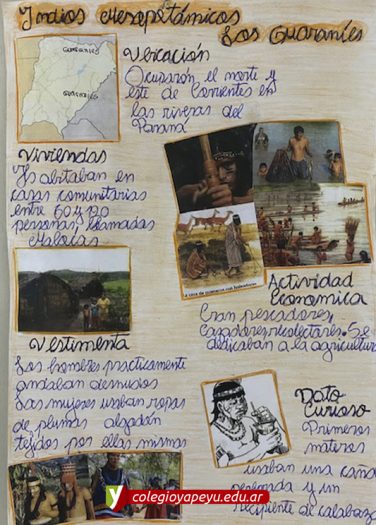 Indios Mesopotámicos
Los Guaraníes
GUARANÍES
GUARANÍES
Ubicación
Ocuparon el norte y
este de Corrientes en
las riveras del
Paraná
Viviendas
abitaban en
casas comunitarias
entre 60 y
personas, llamadas
Malocas
La caza de guanacos con boleadoras
Actividad
Economica
Eran pescadores,
Cazadores, recolectores. Se
dedicaban a la agricultura
Vestimenta
Los hombres practicamente
andaban desnudos
Las mujeres usaban ropas
de plumas algodón
tejidos por ellas mismas
Dato
Curioso
Primeros
materos
usaban una caña
perforada y un
recipiente de calabaza
colegioyapeyu.edu.ar